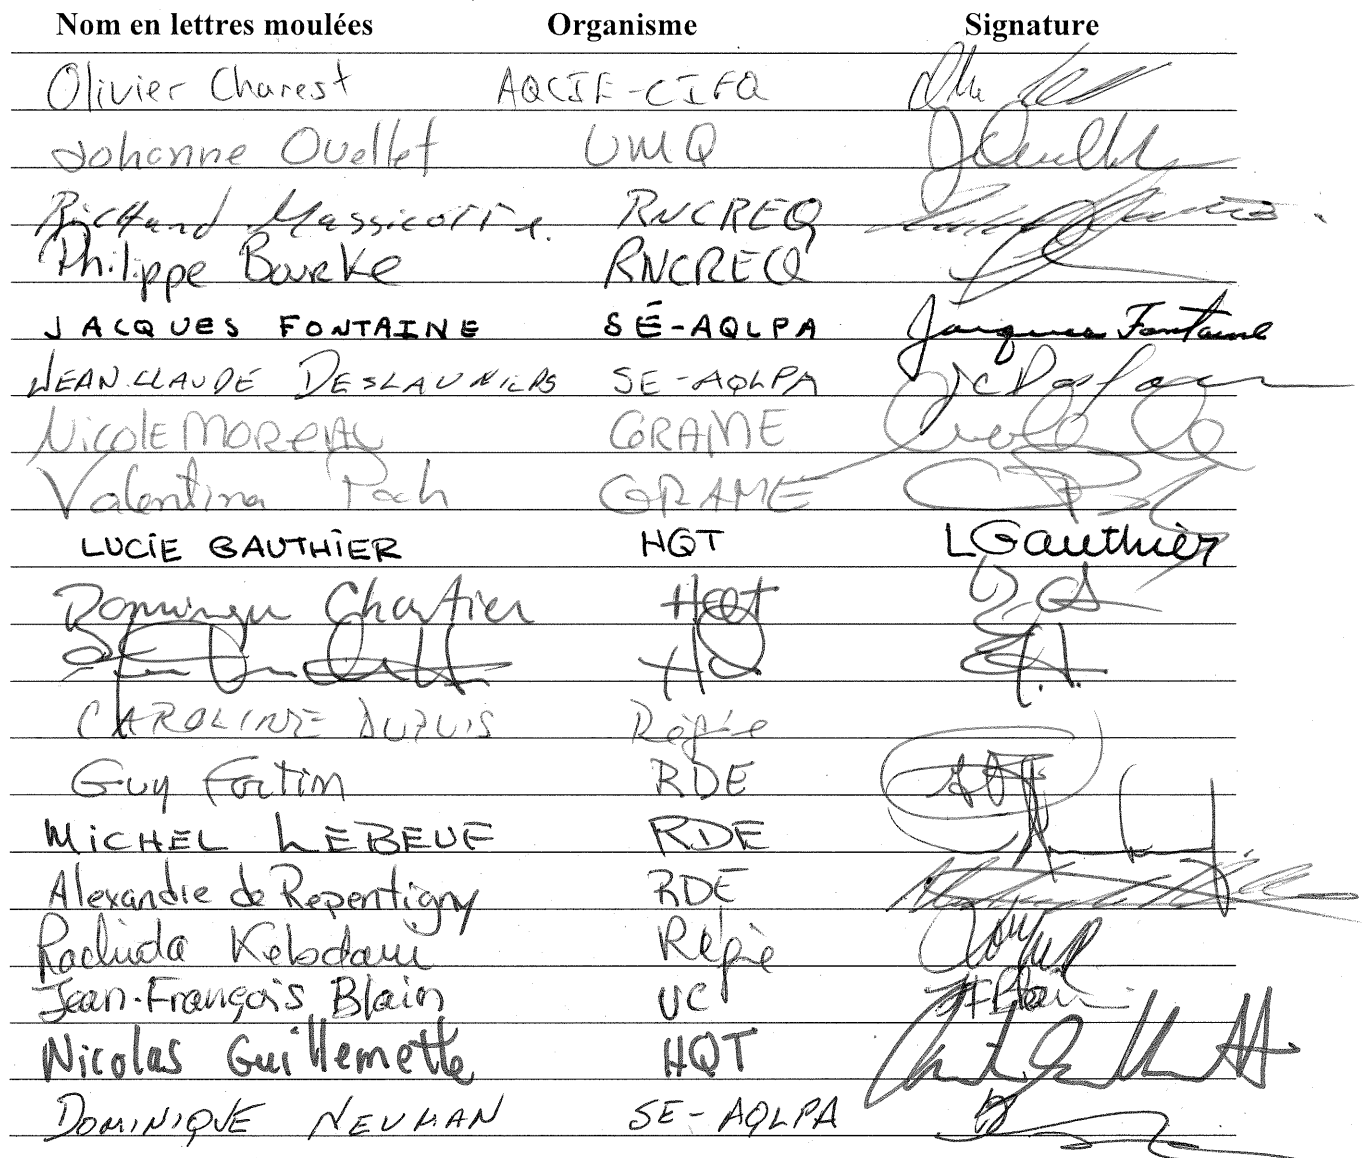 Nom en lettres moulées Organisme Signature
Olivier Charest AQCIE-CIFQ
Johanne Ouellet UMQ JOuellet
Richard Massicotte RNCREQ
Philippe Bourke RNCREQ
JACQUES FONTAINE SÉ-AQLPA Jacques Fontaine
JEAN-CLAUDE DESLAURIERS SE-AQLPA
Nicole MOREAU GRAME
Valentina Poch GRAME
LUCIE GAUTHIER HQT LGauthier
Chartier HQT

CAROLINE DUPUIS Régie
Guy Fortin RDE
MICHEL LEBEUF RDE
Alexandre de Repentigny RDE
Rachida Régie
Jean-François Blain UC JFBlain
Nicolas Guillemette HQT
DOMINIQUE NEUMAN SE-AQLPA